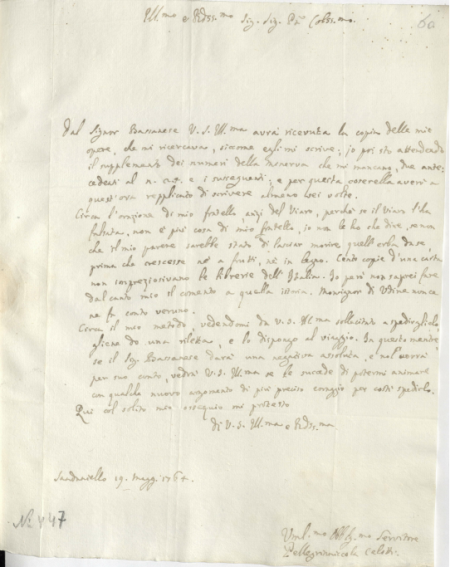 Ill.mo e Rdss.mo Sig. Sig. Pn Colss.mo
60
Dal Signor Bassanese V. S. Ill.ma avrà ricevuta la copia delle mie
opere, che mi ricercavano, siccome egli mi scrive; io poi sto attendendo
il supplemento dei numeri della Minerva che mi mancano, due ante-
cedenti al n. e i susseguenti, e per questa coserella averò a
quest'ora replicato di scrivere almeno sei volte.
Circa l'orazione di mio fratello, anzi del Viaro, perchè se il Viaro l'ha
non è più cosa di mio fratello, io non ho che dire, se non
che il mio parere sarebbe stato di lasciar morire quell'erba,
prima che crescesse nè a frutti, nè in legno. Cento copie d'una carta
non le librerie dell'Italia. Io però non saprei fare
dal canto mio il comento a quella Monsignor di Udine nunca
ne fa conto veruno.
Circa il mio metodo, vedendomi da V. S. Ill.ma sollicitato a spedirglielo
gliene do una rilettura, e lo dispongo al viaggio. In questo mentre
se il Sig. Bassanese darà una negativa assoluta, e nol vorrà
per suo conto, vedrà V. S. Ill.ma se le succede di potermi animare
con qualche nuovo argomento di più preciso coraggio per costì spedirlo.
Qui col solito mio ossequio mi protesto
di V. S. Ill.ma e Rdss.ma
Sandaniello 19. Maggio 1764.
No 447
Uml.mo Obblig.mo Servitore